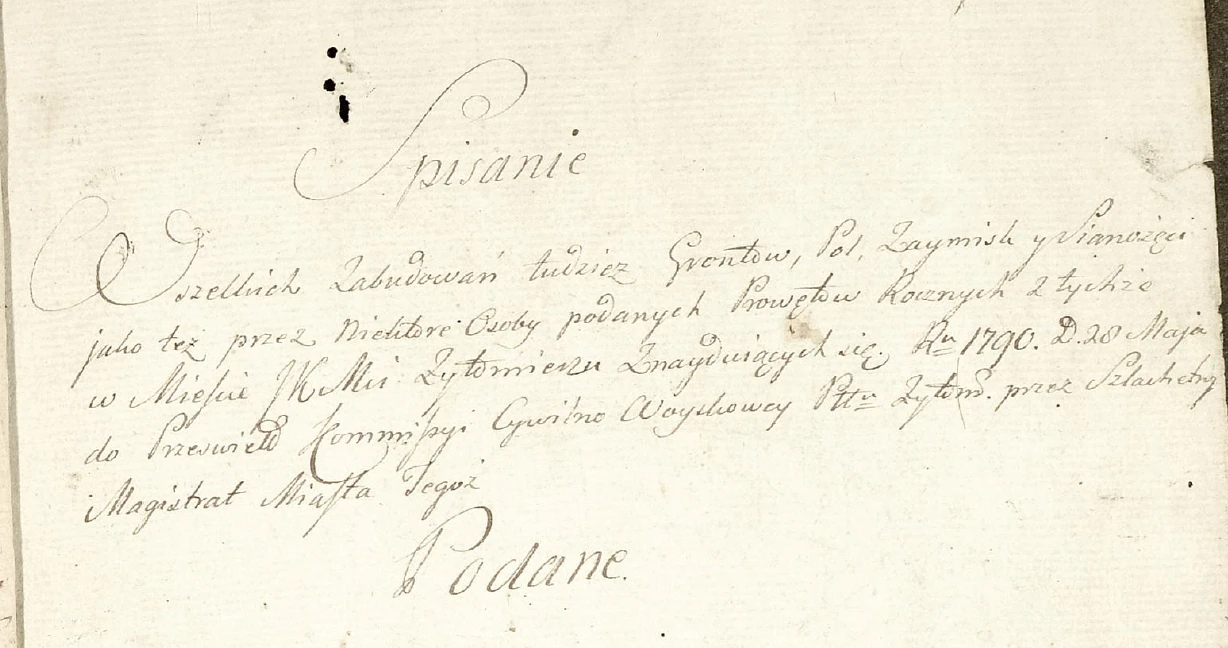 Spisanie
Wszelkich Zabudowań tudziez Grontow, Pol, Zaymisk y Sianożęci
jako tez przez Niektore Osoby podanych Prowętow Rocznych z tychże
w Mieście JKMci Zytomierzu Znayduiących się. Rku 1790. D. 28 Maja
do Przeswietd Kommissyi Cywilno Woyskowey Pttu Zytom. przez Szlachetny
Magistrat Miasta Tegoż
Podane.